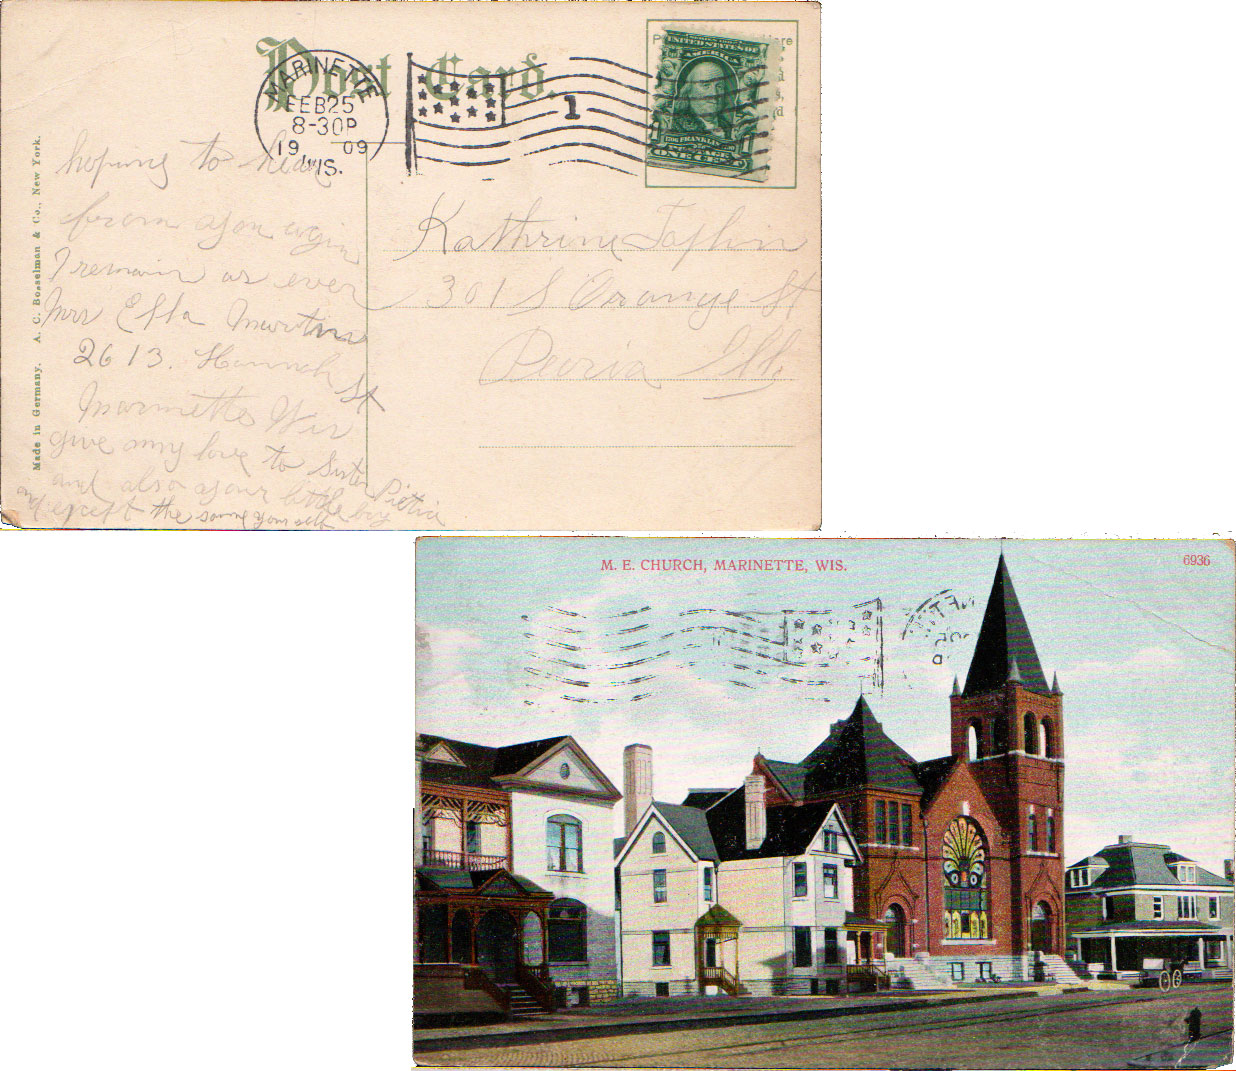 Post Card.
MARINETTE
FEB 25
8-30P
19 09
WIS.
1
Here
UNITED STATES OF
AMERICA
FRANKLIN
POSTAGE
ONE CENT
Made in Germany. A. C. Bosselman & Co., New York.
hoping to hear
from you again
I remain as ever
Mrs Effa Martin
2613. Hannah St
Marinette Wis
give my love to Sister
and also your little boy
and except the same yourself
Kathrine
301 S Orange St
Peoria Ill.
M. E. CHURCH, MARINETTE, WIS.
6936